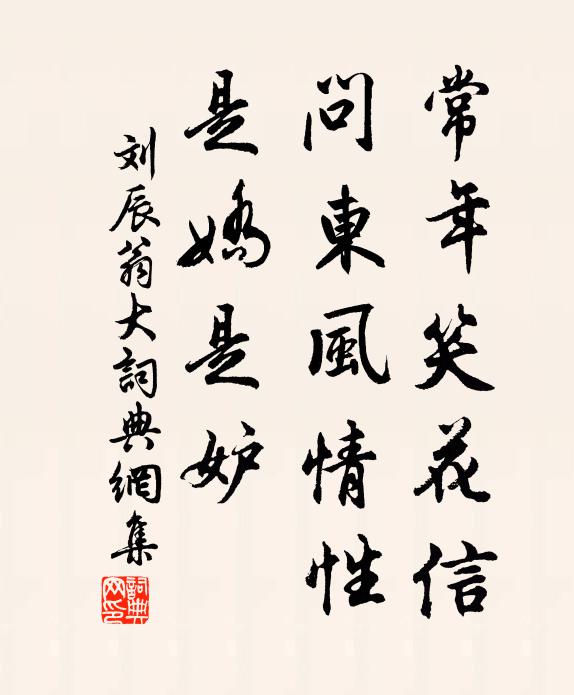 常年笑花信
問東風情性
是嬌是妒
刘辰翁大詞典網集
詞典网印